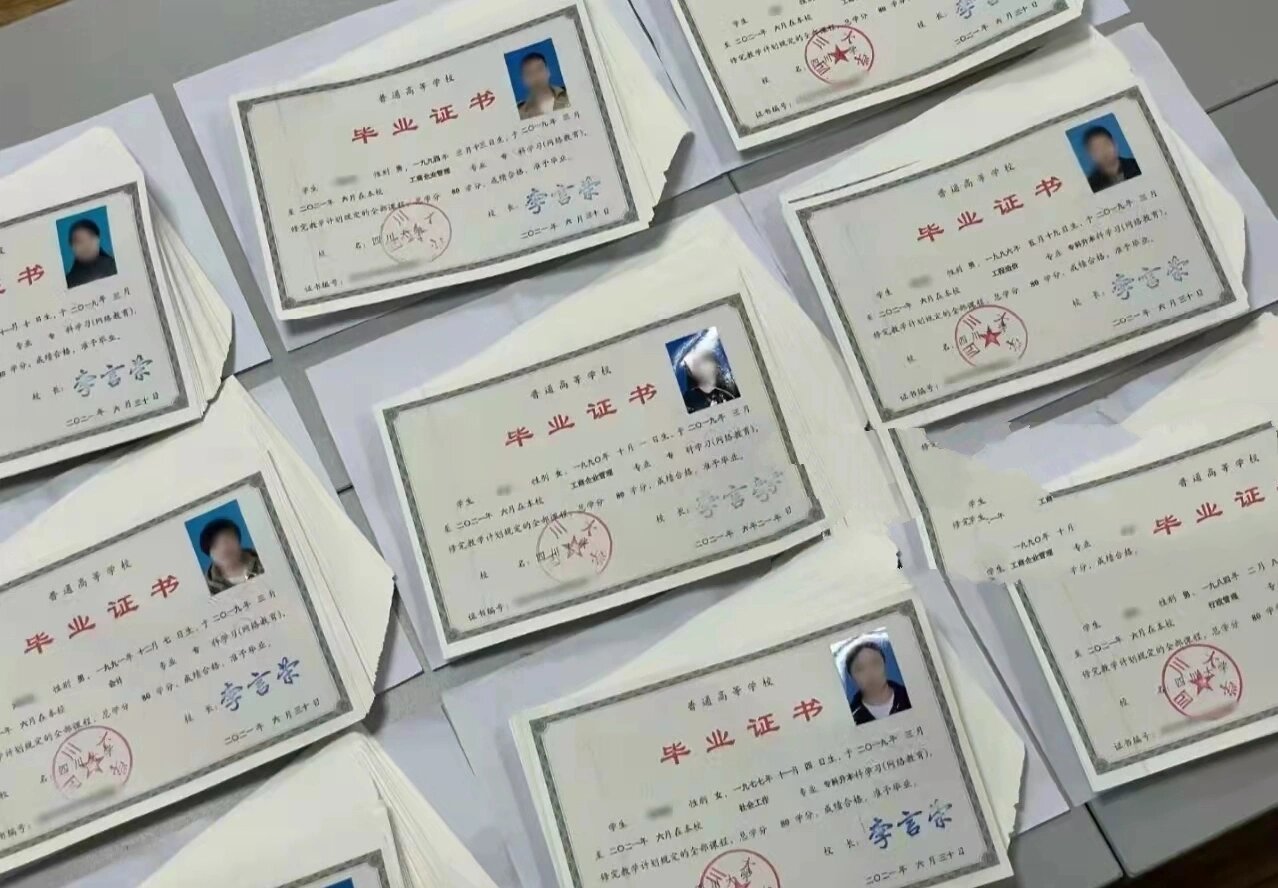 学生
至 二〇二一年 六月在本校
修完教学计划规定的全部课程, 总学分 80 学分, 成绩合格, 准予毕业。
校 名:
四川大学
证书编号:
二〇二一年 六 月 三十 日
普通高等学校
毕 业 证 书
学生 性别 男, 一九九四年 三月十三日生, 于 二〇一九年 三月
至 二〇二一年 六月在本校 工商企业管理 专业 专 科学习(网络教育),
修完教学计划规定的全部课程, 总学分 80 学分, 成绩合格, 准予毕业。
校 名: 四川大学
校 长: 李言荣
证书编号:
二〇二一年 六 月 三十 日
普通高等学校
毕 业 证 书
学生 性别 男, 一九九六年 五月十九日生, 于 二〇一九年 三月
至 二〇二一年 六月在本校 工程造价 专业 专科升本科学习(网络教育),
修完教学计划规定的全部课程, 总学分 80 学分, 成绩合格, 准予毕业。
校 名:
四川大学
校 长: 李言荣
证书编号:
二〇二一年 六 月 三十 日
证 书
十一月 十 日生, 于 二〇一九年 三月
专业 专 科学习(网络教育),
学分, 成绩合格, 准予毕业。
校 长: 李言荣
二〇二一年 六 月 三十 日
普通高等学校
毕 业 证 书
学生 性别 女, 一九九〇年 十月 一 日生, 于 二〇一九年 三月
至 二〇二一年 六月在本校 工商企业管理 专业 专 科学习(网络教育),
修完教学计划规定的全部课程, 总学分 80 学分, 成绩合格, 准予毕业。
校 名: 四川大学
校 长: 李言荣
证书编号:
二〇二一年 六年二一 日
普通高等学校
毕 业 证 书
性别 男, 一九九一年 十二月 七 日生, 于 二〇一九年 三月
年 六月在本校 会计 专业 专 科学习(网络教育),
学计划规定的全部课程, 总学分 80 学分, 成绩合格, 准予毕业。
名: 四川大学
校 长: 李言荣
书编号:
二〇二一年 六 月 三十 日
学生
工商
修完学生
一九九〇年 十月
学生 工商企业管理 专业
学分, 成绩合格,
普通高等学校
毕 业 证
学生 性别 男, 一九八四年 二月
至 二〇二一年 六月在本校 行政管理 专业
修完教学计划规定的全部课程, 总学分 80 学
校 名: 四川大学
证书编号:
普通高等学校
毕 业 证 书
学生 性别 女, 一九七七年 十一月 四 日生, 于 二〇一九年 三月
至 二〇二一年 六月在本校 社会工作 专业 专科升本科学习(网络教育),
修完教学计划规定的全部课程, 总学分 80 学分, 成绩合格, 准予毕业。
校 长: 李言荣
二〇二一年 六 月 三十 日